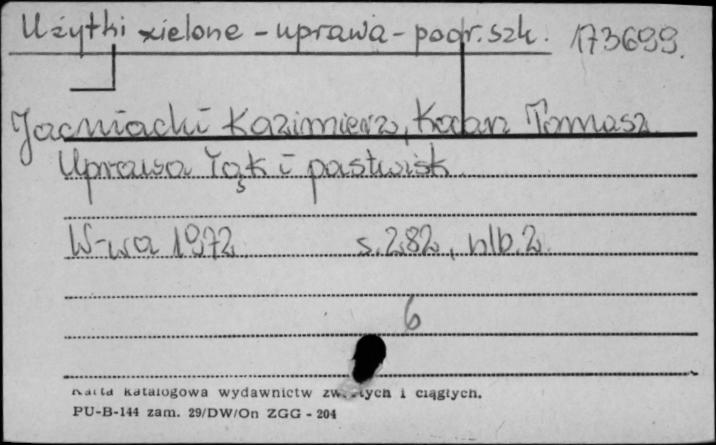 Użytki zielone - uprawa - podr. szk. 173699.
Jacniacki Kazimierz, Tomasz
Uprawa łąk i pastwisk
W-wa 1972 s. 282, nlb. 2.
6
Karta katalogowa wydawnictw zwartych i ciągłych.
PU-B-144 zam. 29/DW/On ZGG - 204